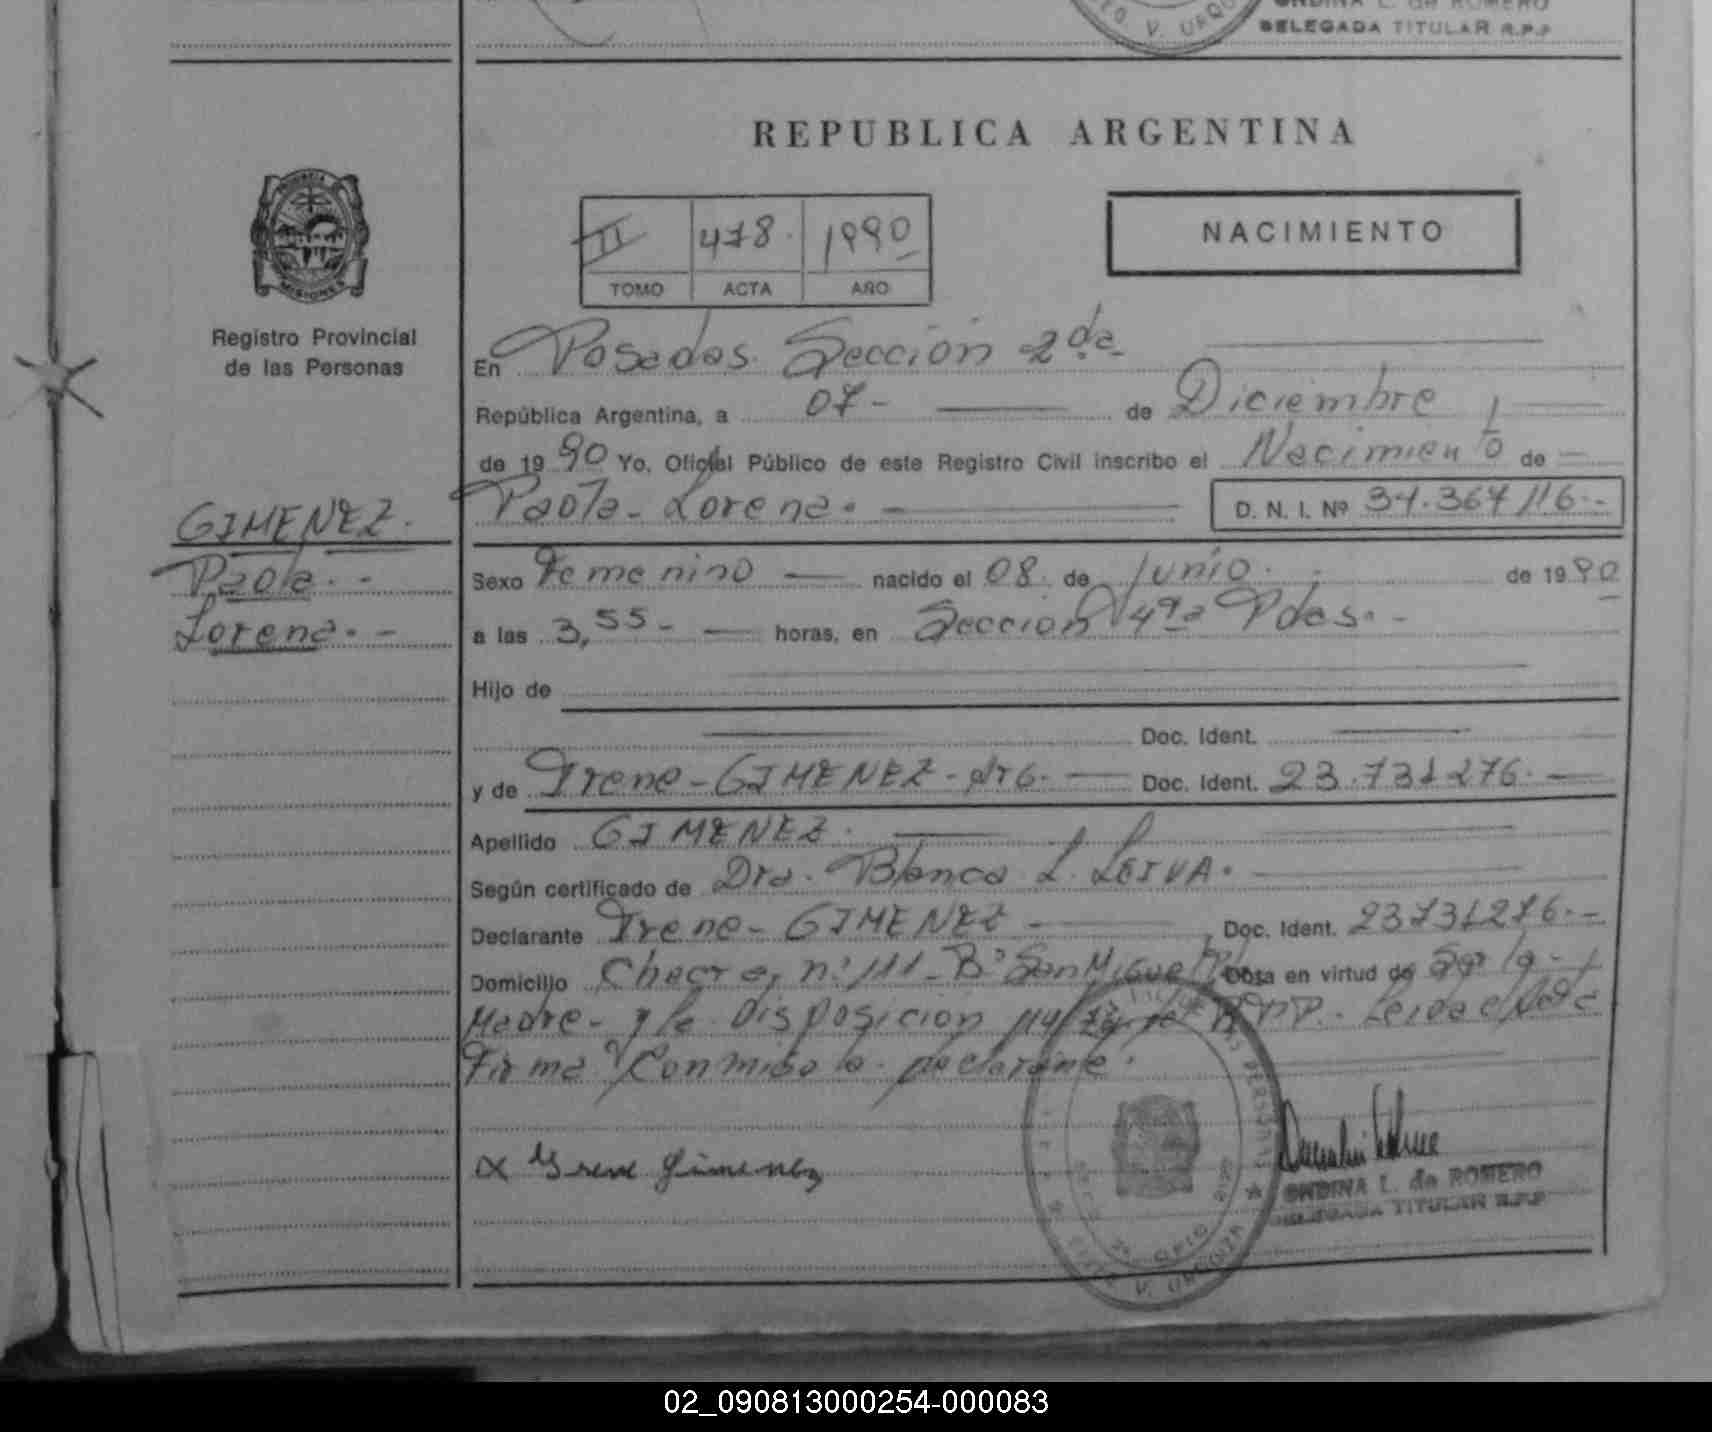 ONDINA L. de ROMERO
DELEGADA TITULAR R.P.P
V. URQU
REPUBLICA ARGENTINA
PROVINCIA
MISIONES
Registro Provincial
de las Personas
II 478. 1990
TOMO ACTA AÑO
NACIMIENTO
En Posadas. Sección 2da
República Argentina, a 07- de Diciembre
de 1990 Yo, Oficial Público de este Registro Civil inscribo el Nacimiento de
Paola- Lorena. D. N. I. Nº 34.367 116.-
GIMENEZ.
Paola. -
Lorena. -
Sexo Femenino nacido el 08. de Junio. de 1990
a las 3,55- horas, en Sección 4ta Pdas.-
Hijo de
Doc. Ident.
y de Irene- GIMENEZ- Arg. Doc. Ident. 23.731276.
Apellido GIMENEZ.
Según certificado de Dra. Blanca L. LEIVA.
Declarante Irene- GIMENEZ Doc. Ident. 23731276.-
Domicilio Chacra, nº 111- Bº San Miguel Obra en virtud de
Madre- y la Disposición R.P.P.- Leida el Acta
Firma Conmigo la declarante.
x Irene Gimenez
ONDINA L. de ROMERO
DELEGADA TITULAR R.P.P
V. URQUIZA
02_090813000254-000083